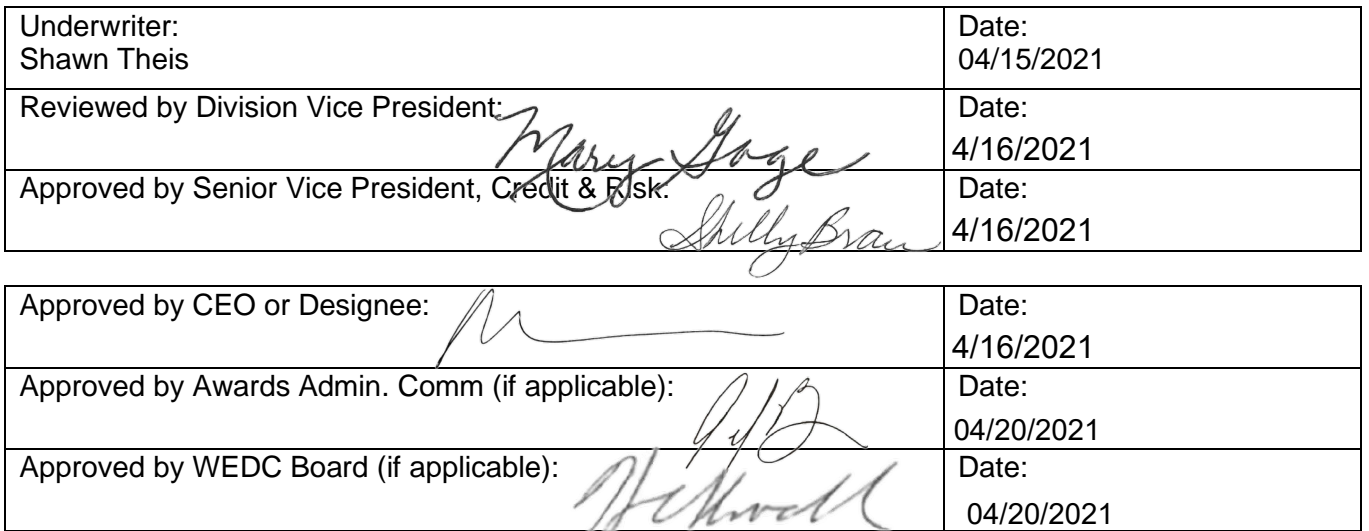 Underwriter:
Shawn Theis
Date:
04/15/2021
Reviewed by Division Vice President:
Mary Gage
Date:
4/16/2021
Approved by Senior Vice President, Credit & Risk:
Shelly Braun
Date:
4/16/2021
Approved by CEO or Designee:
Date:
4/16/2021
Approved by Awards Admin. Comm (if applicable):
Date:
04/20/2021
Approved by WEDC Board (if applicable):
Date:
04/20/2021